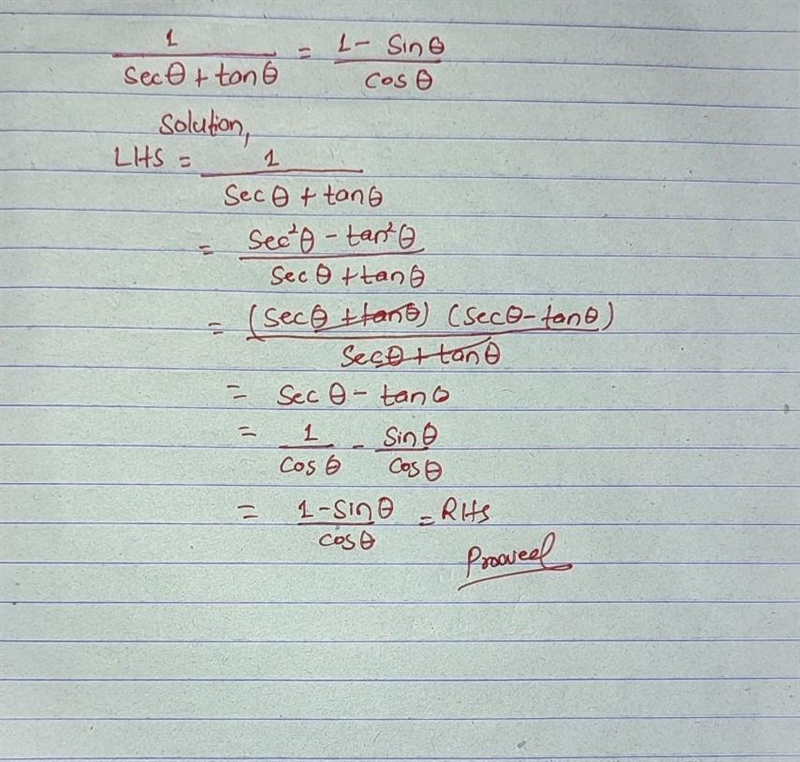 1/(Secθ + tanθ) = (1 - Sinθ)/(cosθ)
Solution,
LHS = 1/(Secθ + tanθ)
= (Sec²θ - tan²θ)/(Secθ + tanθ)
= ((Secθ + tanθ) (Secθ - tanθ))/(Secθ + tanθ)
= Secθ - tanθ
= 1/(Cosθ) - Sinθ/(Cosθ)
= (1 - Sinθ)/(cosθ) = RHS
Prooved